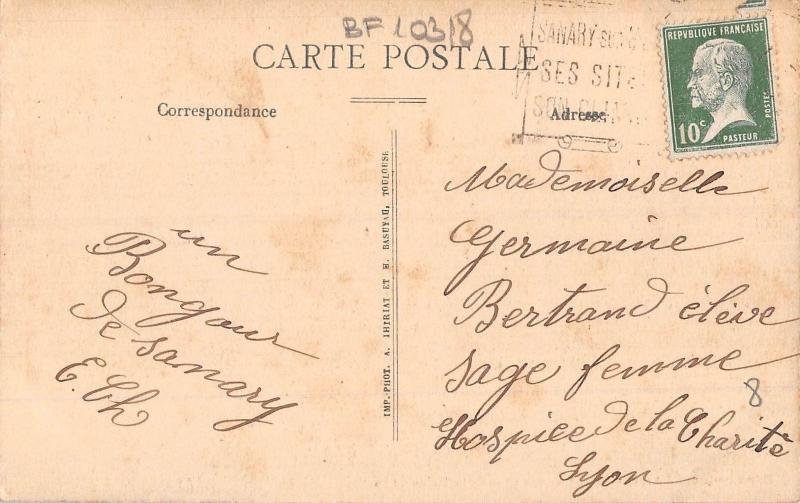 BF 10318
CARTE POSTALE
Correspondance
Adresse
SANARY SUR
SES SITE
SON CLIM
REPVBLIQUE FRANÇAISE
POSTES
10c
PASTEUR
un
Bongour
de Sanary
E. Ch
IMP.-PHOT. A. THIRIAT ET H. BASUYAU, TOULOUSE
Mademoiselle
Germaine
Bertrand élève
sage femme
Hospice de la Charité
Lyon
8